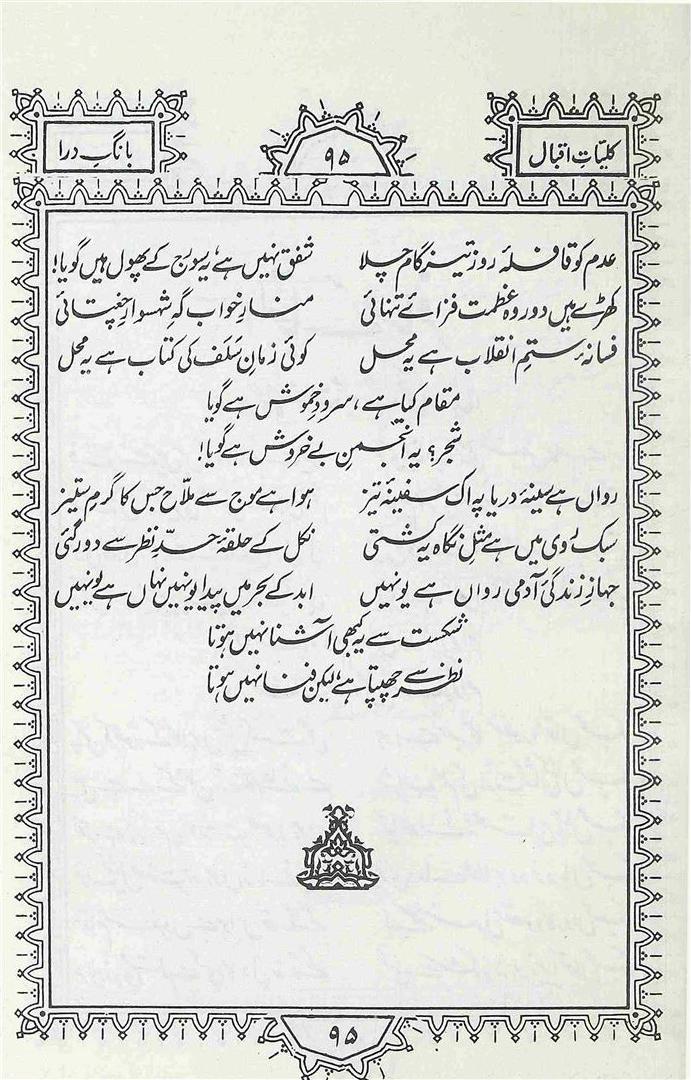 کلیاتِ اقبال ۹۵ بانگِ درا
عدم کو قافلۂ روز تیز گام چلا شفق نہیں ہے، یہ سورج کے پھول ہیں گویا!
کھڑے ہیں دور وہ عظمت فزائے تنہائی منارِ خواب گہِ شہسوارِ چغتائی
فسانۂ ستمِ انقلاب ہے یہ محل کوئی زمانِ سَلَف کی کتاب ہے یہ محل
مقام کیا ہے، سرودِ خموش ہے گویا
شجر؟ یہ انجمنِ بے خروش ہے گویا!
رواں ہے سینۂ دریا پہ اک سفینۂ تیز ہوا ہے موج سے ملّاح جس کا گرمِ ستیز
سبک رَوی میں ہے مثلِ نگاہ یہ کشتی نکل کے حلقۂ حدِّ نظر سے دور گئی
جہازِ زندگیٔ آدمی رواں ہے یونہیں ابد کے بحر میں پیدا یونہیں نہاں ہے یونہیں
شکست سے یہ کبھی آشنا نہیں ہوتا
نظر سے چھپتا ہے، لیکن فنا نہیں ہوتا
۹۵